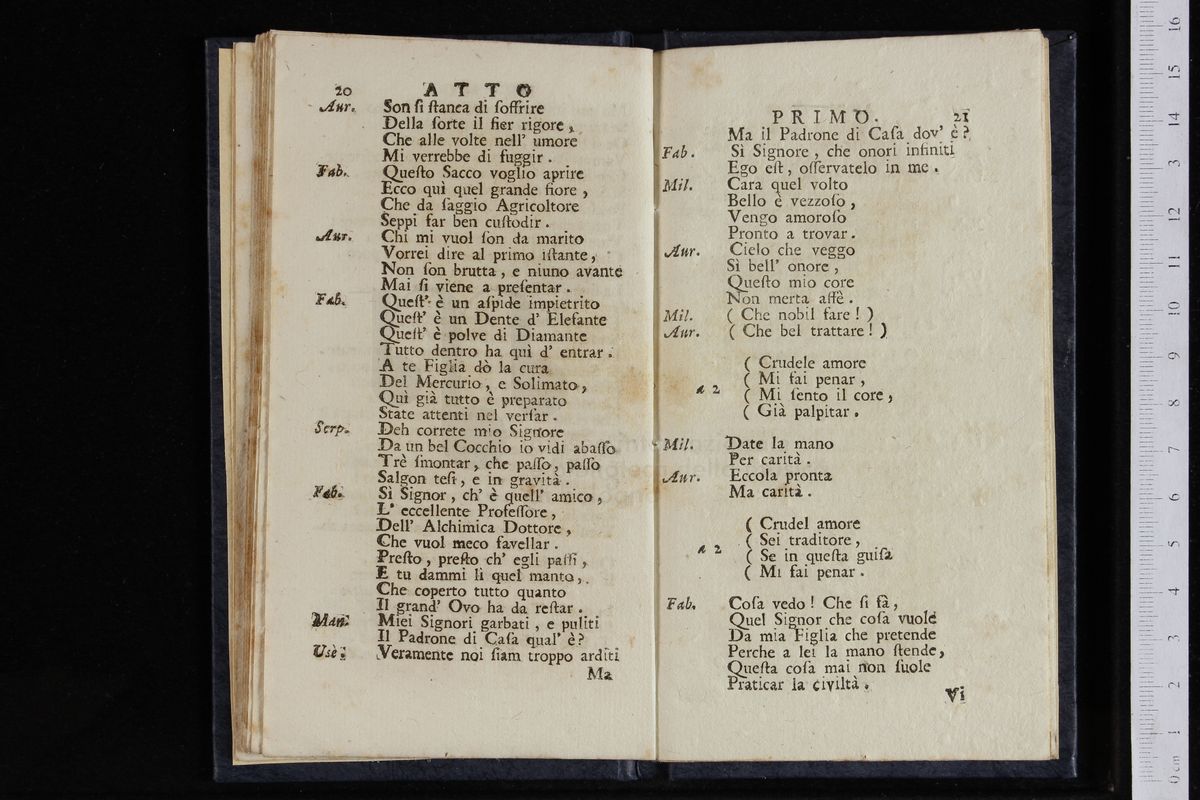 20 ATTO
Aur. Son ſi ſtanca di ſoffrire
Della ſorte il fier rigore,
Che alle volte nell' umore
Mi verrebbe di fuggir.
Fab. Queſto Sacco voglio aprire
Ecco quì quel grande fiore,
Che da ſaggio Agricoltore
Seppi far ben cuſtodir.
Aur. Chi mi vuol ſon da marito
Vorrei dire al primo iſtante,
Non ſon brutta, e niuno avante
Mai ſi viene a preſentar.
Fab. Queſt' è un aſpide impietrito
Queſt' è un Dente d' Elefante
Queſt' è polve di Diamante
Tutto dentro ha quì d' entrar.
A te Figlia dò la cura
Del Mercurio, e Solimato,
Quì già tutto è preparato
State attenti nel verſar.
Serp. Deh correte mio Signore
Da un bel Cocchio io vidi abaſſo
Trè ſmontar, che paſſo, paſſo
Salgon teſi, e in gravità.
Fab. Sì Signor, ch' è quell' amico,
L' eccellente Profeſſore,
Dell' Alchimica Dottore,
Che vuol meco favellar.
Preſto, preſto ch' egli paſſi,
E tu dammi lì quel manto,
Che coperto tutto quanto
Il grand' Ovo ha da reſtar.
Man. Miei Signori garbati, e puliti
Il Padrone di Caſa qual' è?
Usè. Veramente noi ſiam troppo arditi
Ma
PRIMO. 21
Ma il Padrone di Caſa dov' è?
Fab. Sì Signore, che onori infiniti
Ego eſt, oſſervatelo in me.
Mil. Cara quel volto
Bello è vezzoſo,
Vengo amoroſo
Pronto a trovar.
Aur. Cielo che veggo
Sì bell' onore,
Queſto mio core
Non merta affè.
Mil. (Che nobil fare!)
Aur. (Che bel trattare!)
(Crudele amore
(Mi fai penar,
a 2 (Mi ſento il core,
(Già palpitar.
Mil. Date la mano
Per carità.
Aur. Eccola pronta
Ma carità.
(Crudel amore
(Sei traditore,
a 2 (Se in queſta guiſa
(Mi fai penar.
Fab. Coſa vedo! Che ſi fà,
Quel Signor che coſa vuole
Da mia Figlia che pretende
Perche a lei la mano ſtende,
Queſta coſa mai non ſuole
Praticar la civiltà.
Vi
0 cm 1 2 3 4 5 6 7 8 9 10 11 12 13 14 15 16